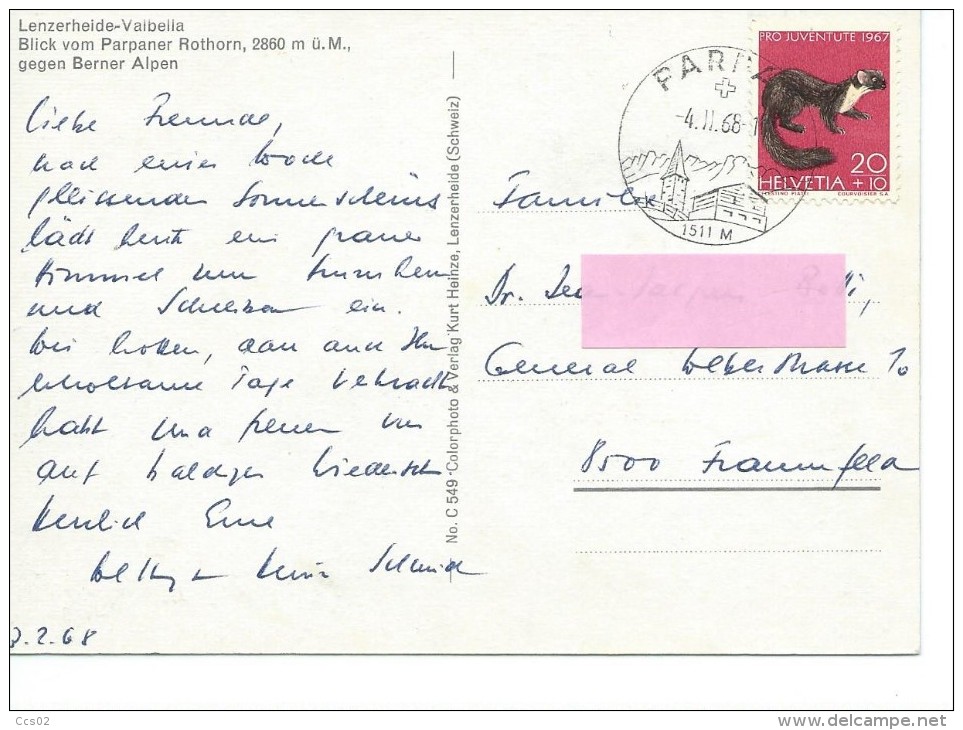 Lenzerheide-Valbella
Blick vom Parpaner Rothorn, 2860 m ü.M.,
gegen Berner Alpen
Liebe Freunde,
nach einer Woche
gleissenden Sonnenscheins
lädt heute ein grauer
Himmel zum
und Schreiben ein.
Wir hoffen, dass auch Ihr
erholsame Tage verbracht
habt und freuen uns
auf baldiges Wiedersehn
Herzlich Eure
Schmid
3.2.68
No. C 549 Colorphoto & Verlag Kurt Heinze, Lenzerheide (Schweiz)
PARPA
-4.II.68-1
1511 M
PRO JUVENTUTE 1967
20
HELVETIA +10
COURVOISIER S.A.
Familie
Dr.
General Weberstrasse 10
8500 Frauenfeld
Ccs02
www.delcampe.net